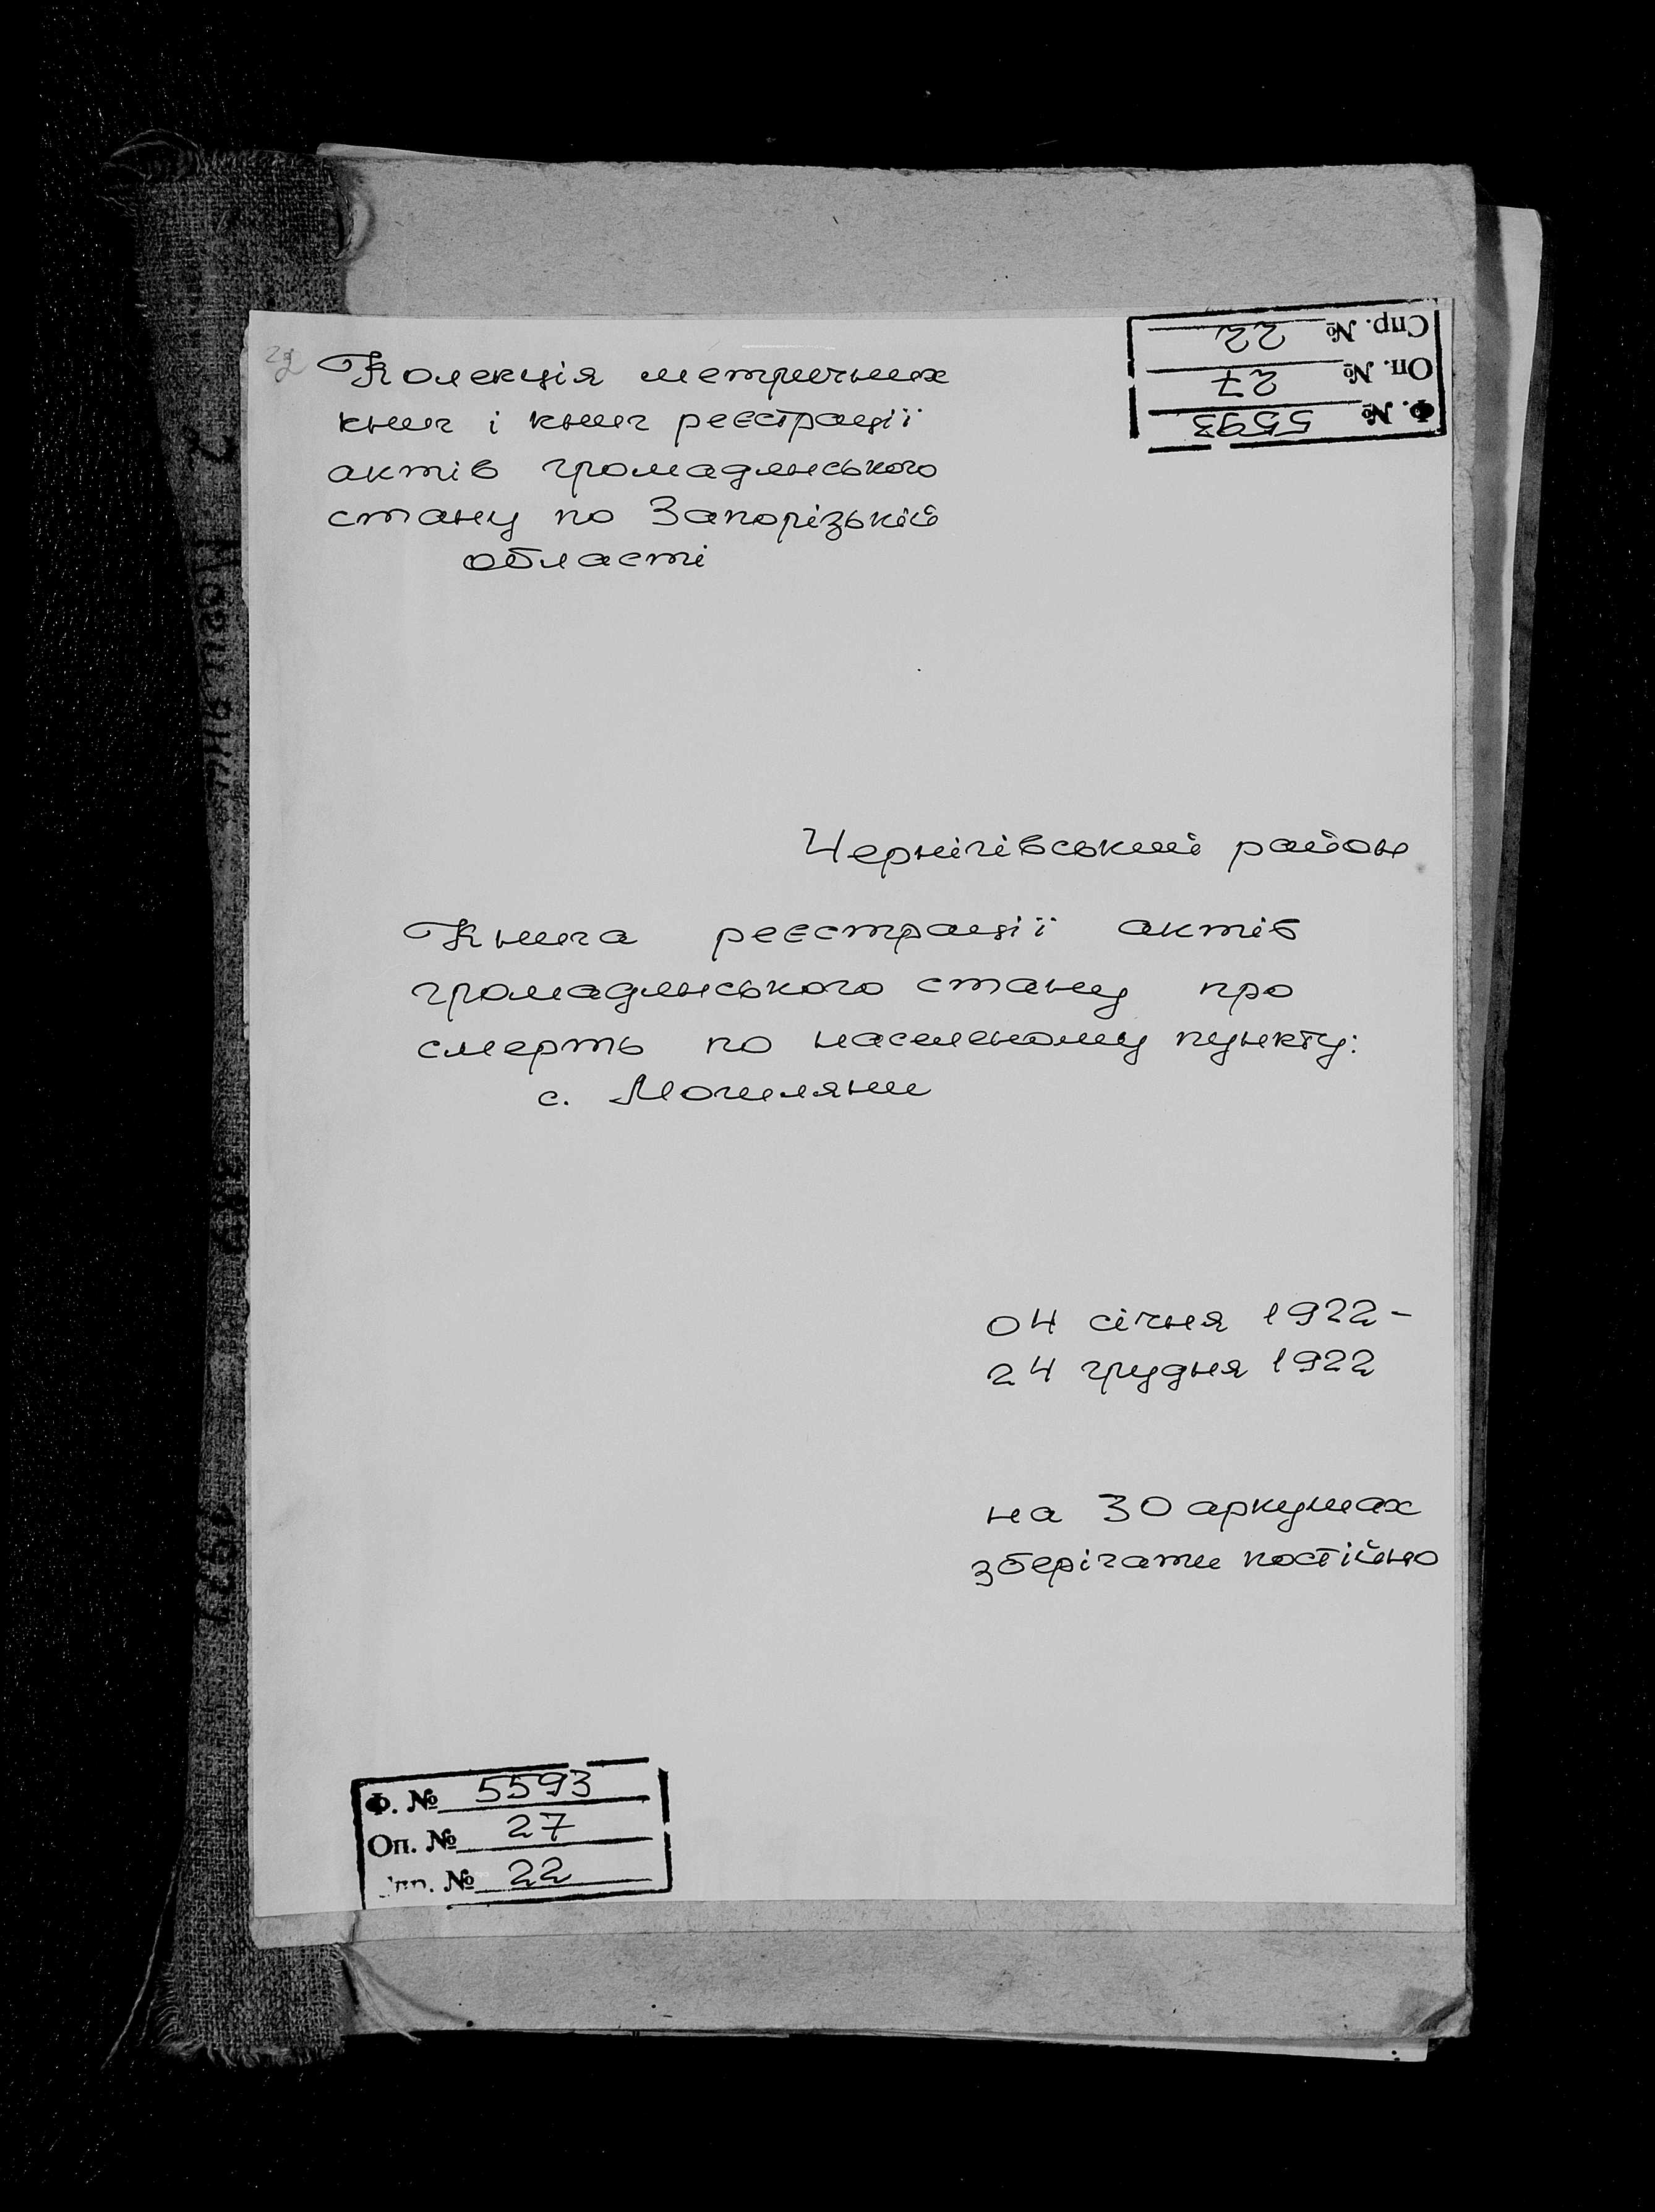 Спр. № 22
Оп. № 27
Ф. № 5593
Колекція метричних
книг і книг реєстрації
актів громадянського
стану по Запорізькій
області
Чернігівський район
Книга реєстрації актів
громадянського стану про
смерть по населеному пункту:
с. Могиляни
04 січня 1922 –
24 грудня 1922
на 30 аркушах
зберігати постійно
Ф. № 5593
Оп. № 27
№ 22